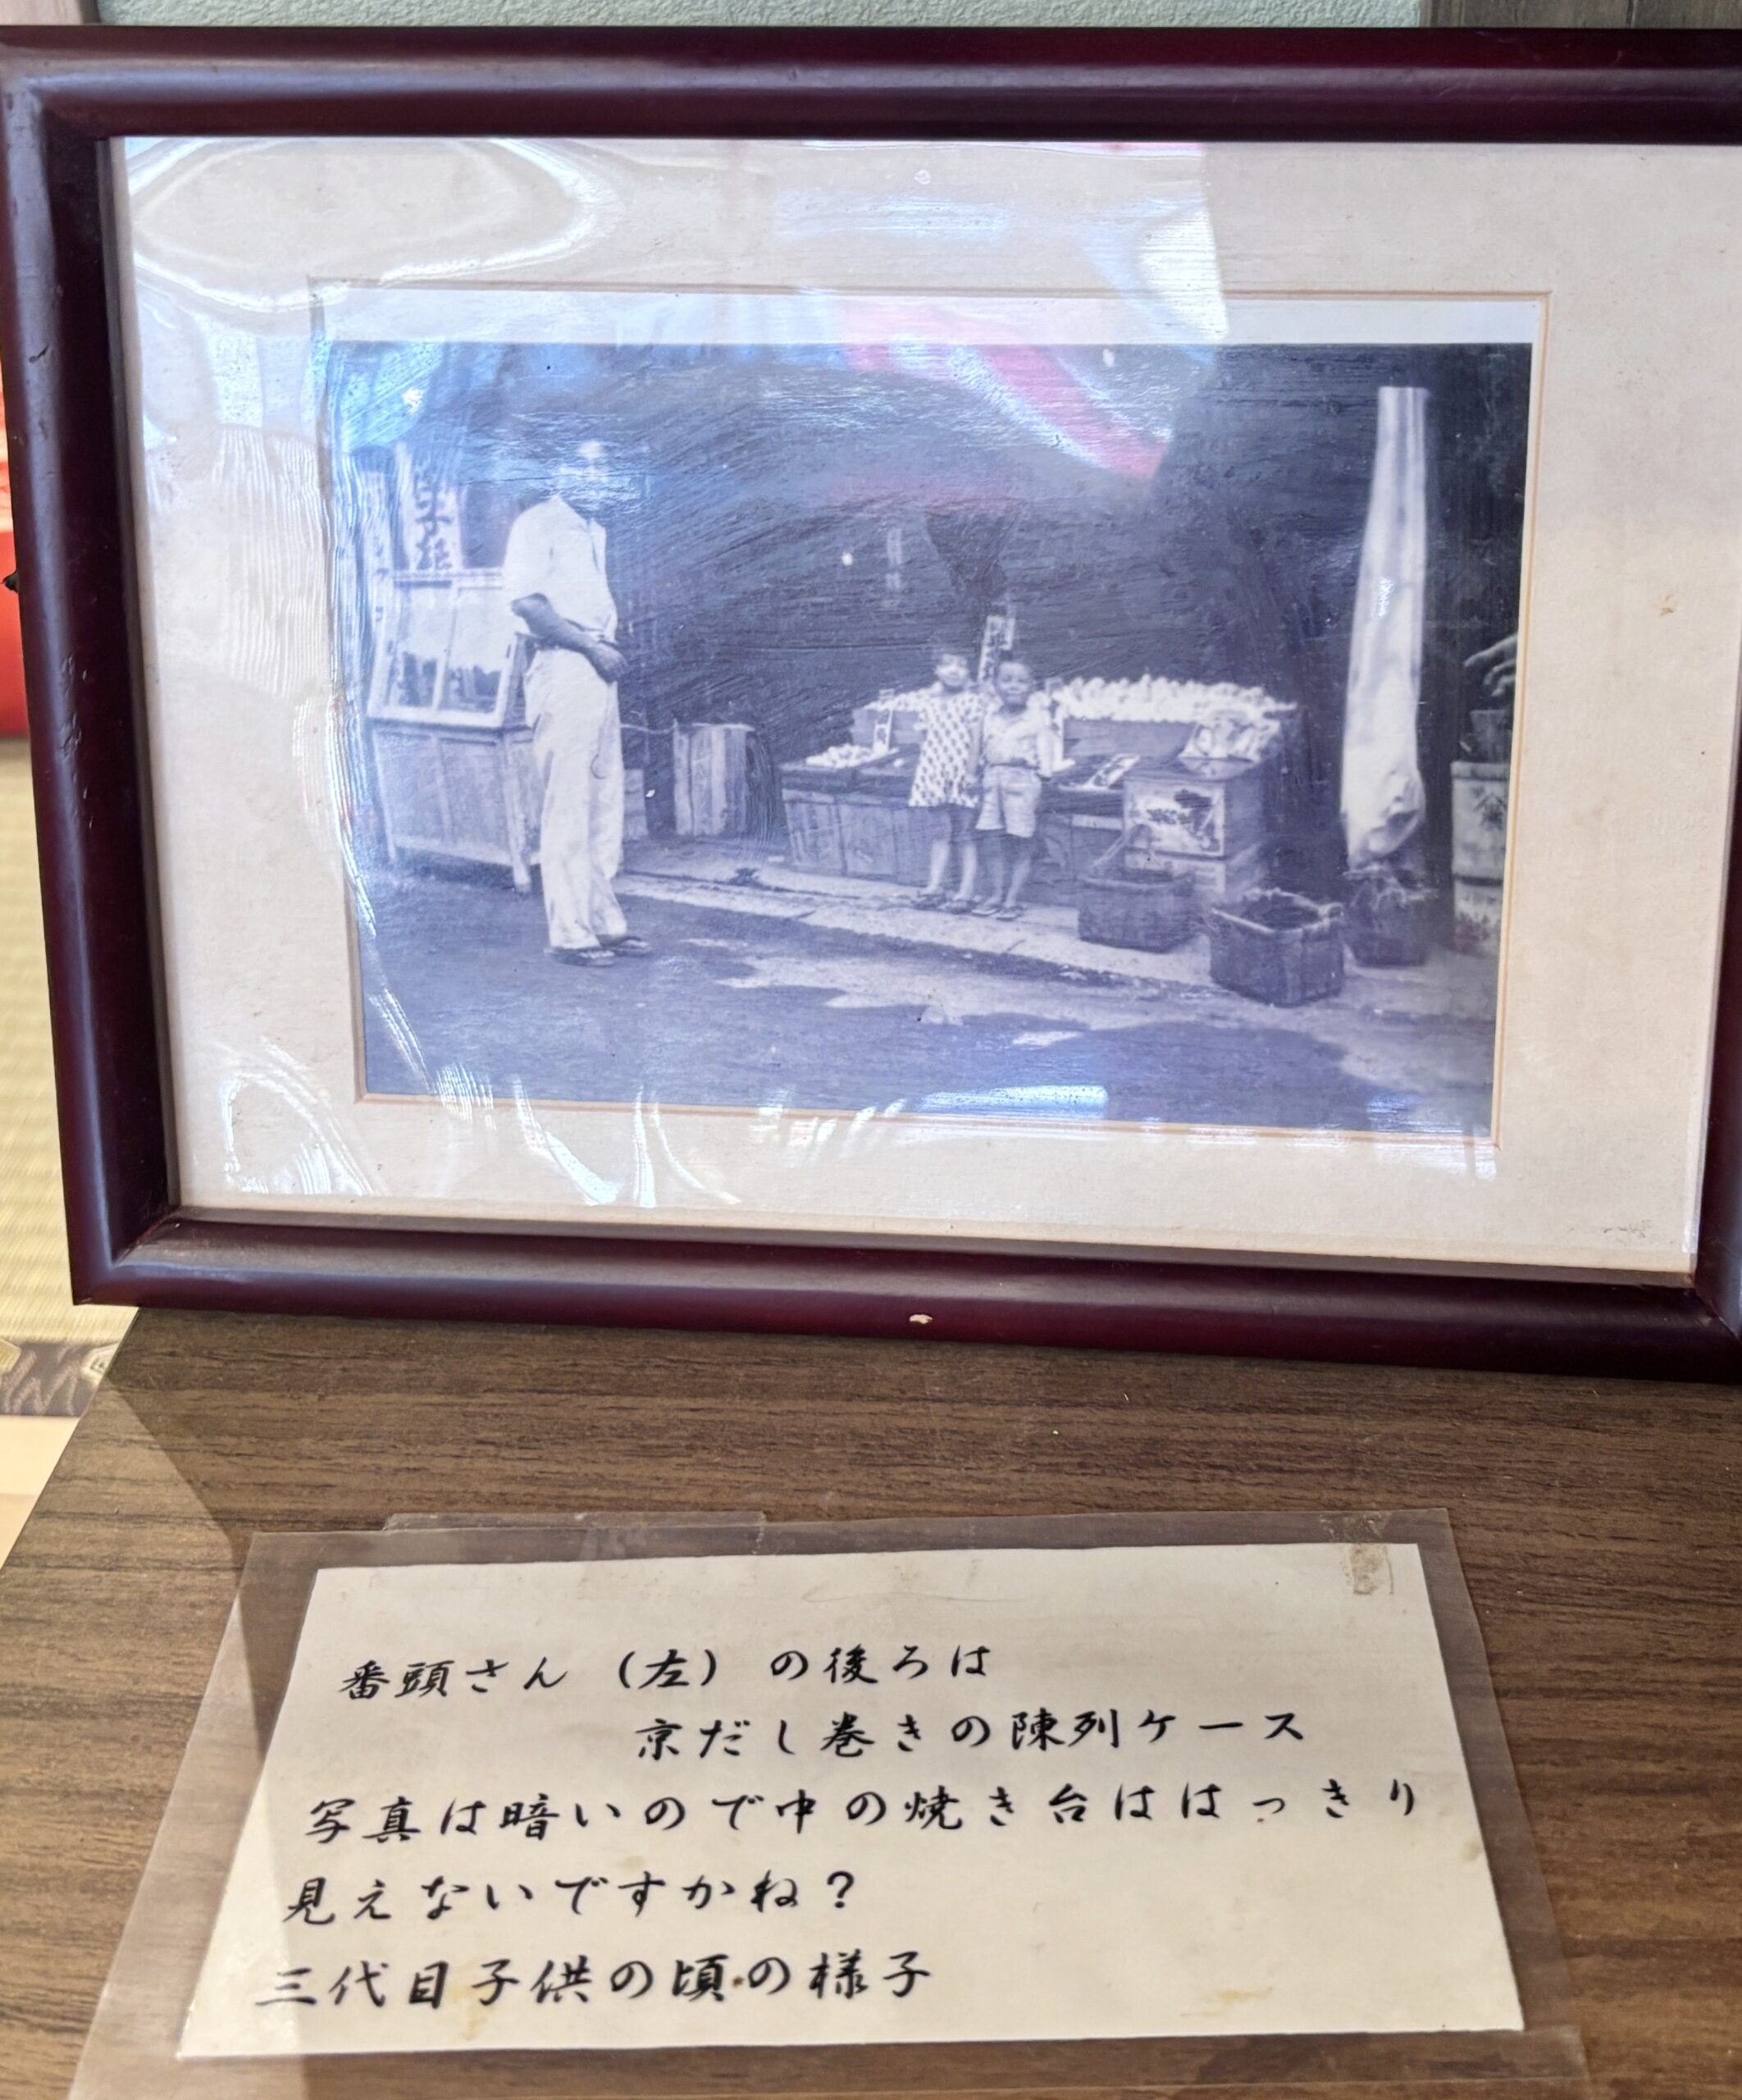 番頭さん（左）の後ろは
京だし巻きの陳列ケース
写真は暗いので中の焼き台ははっきり
見えないですかね？
三代目子供の頃の様子